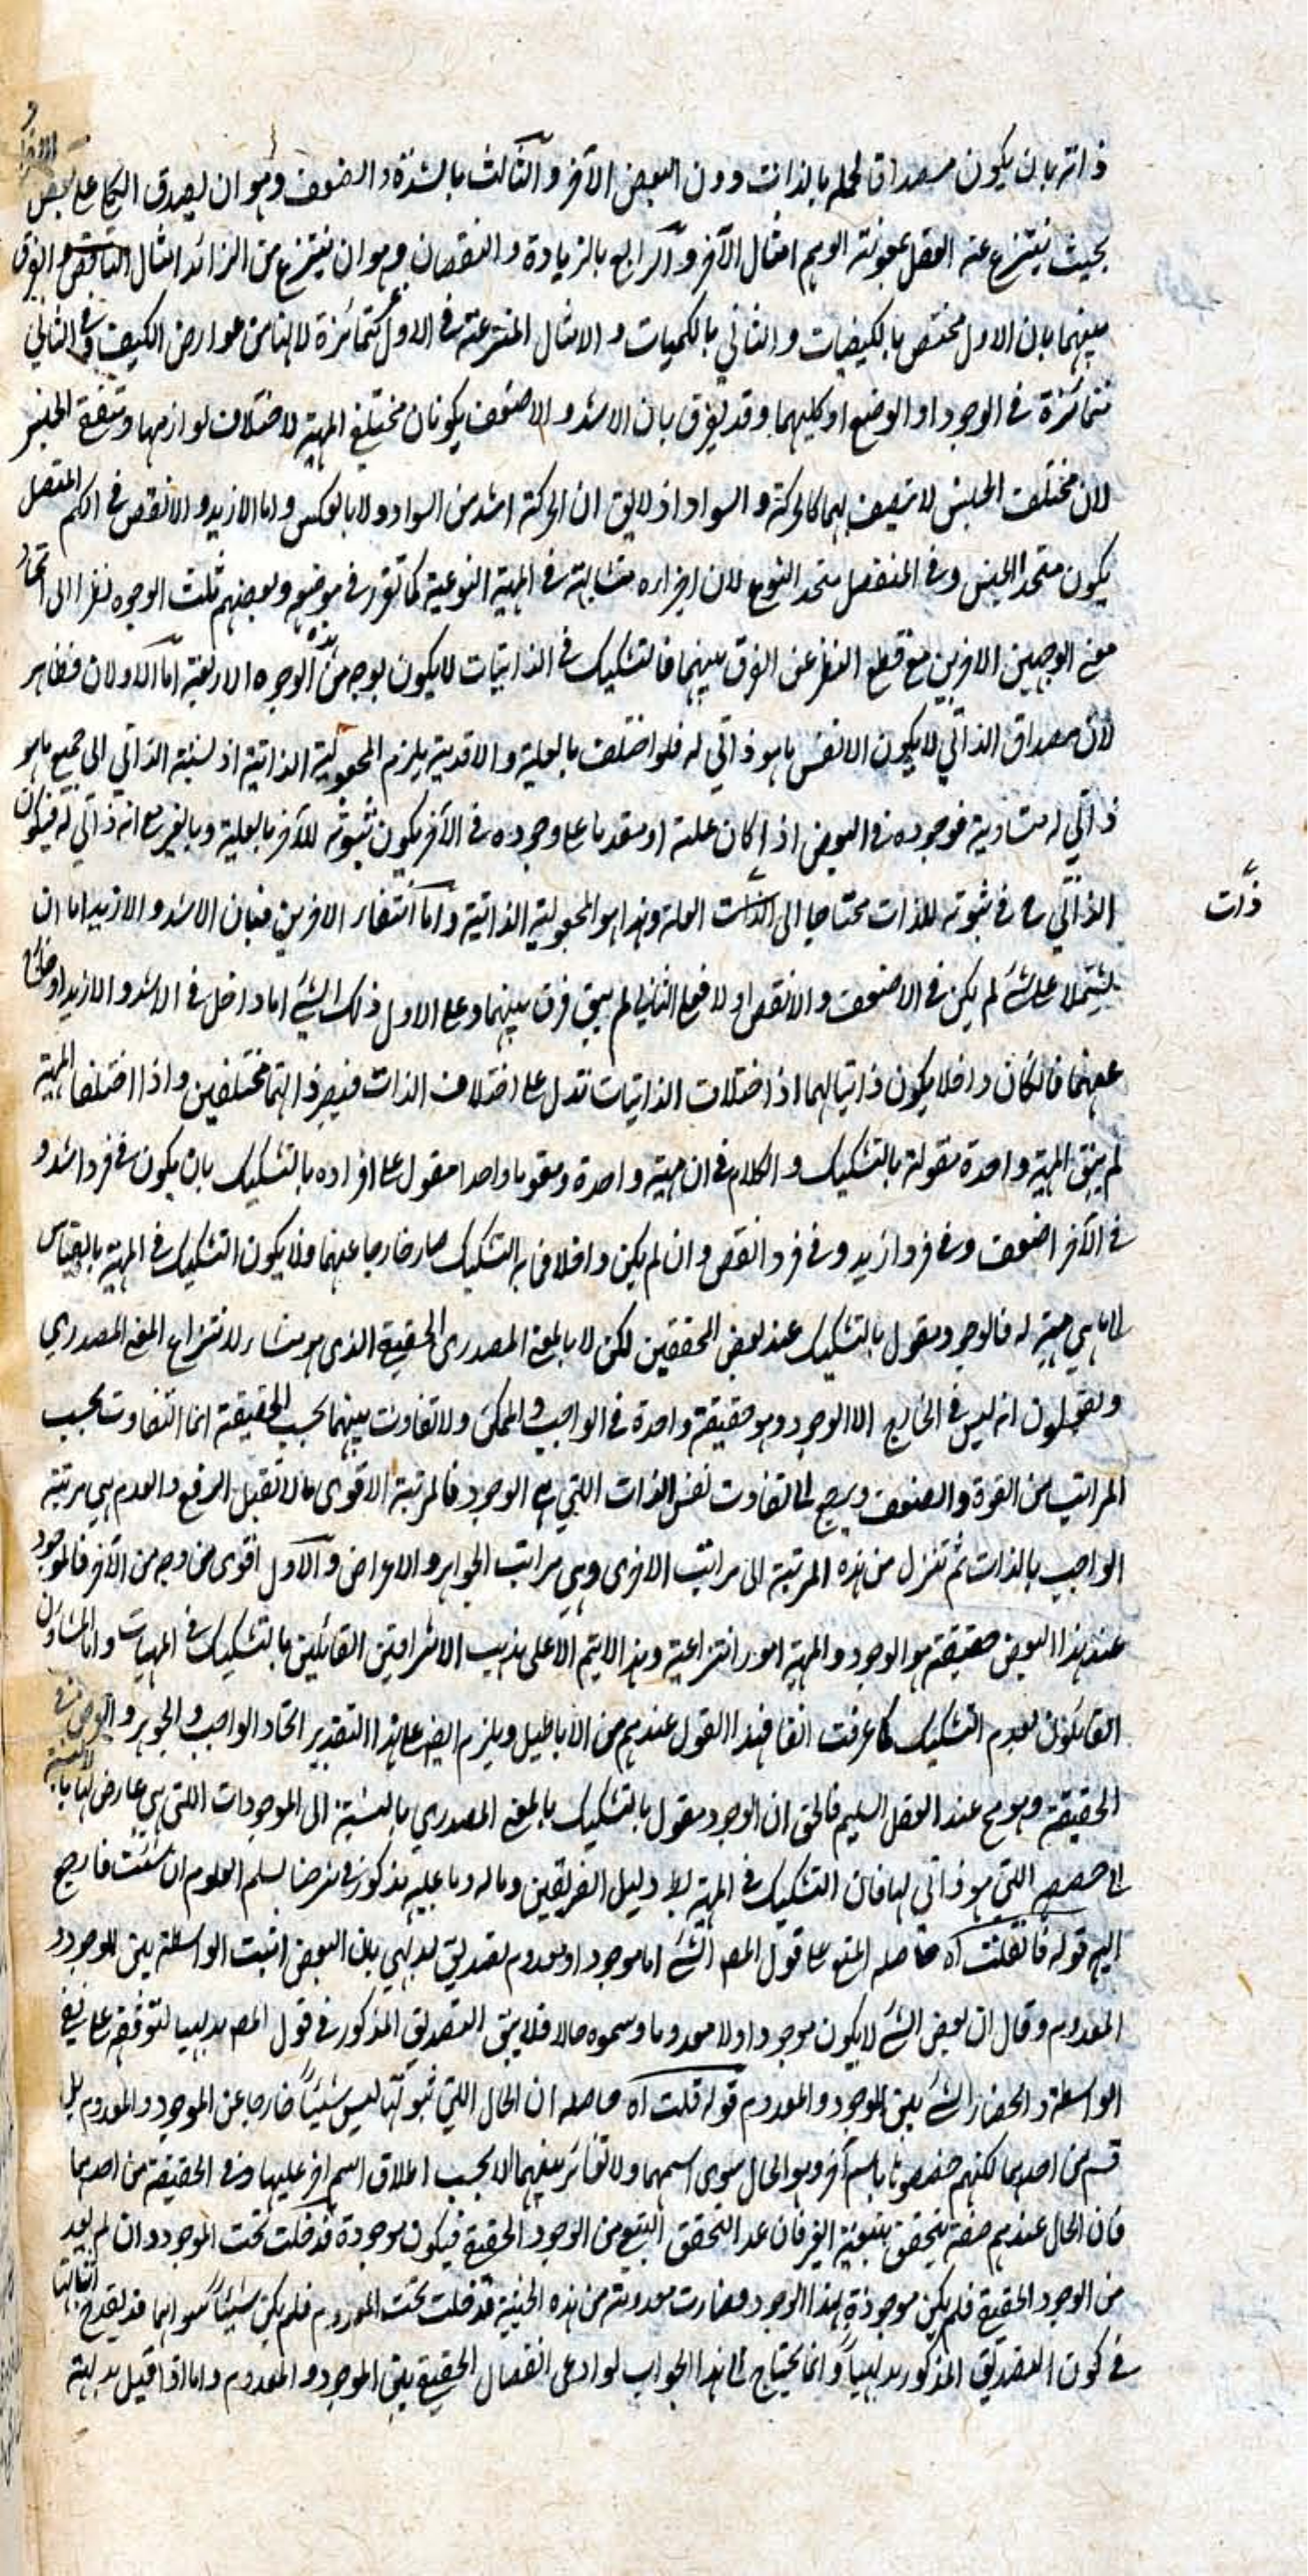 ذاته بان يكون مصداقا لحمله بالذات دون البعض الآخر والثالث بالشدة والضعف وهو ان يصدق الكلي على بعض الافراد
بحيث ينتزع عنه العقل بمعونة الوهم امثال الآخر والرابع بالزيادة والنقصان وهو ان ينتزع من الزائد امثال الناقص والفرق
بينهما بان الاول مختص بالكيفيات والثاني بالكميات والامثال المنتزعة في الاول متمائزة لانها من عوارض الكيف وفي الثاني
متمائزة في الوجود او الوضع او كليهما وقد يفرق بان الاشد والاضعف يكونان مختلفي المهية لاختلاف لوازمها ومتفقي الجنس
لان مختلف الجنس لا يتصف بهما كالحركة والسواد اذ لا يق ان الحركة اشد من السواد ولا بالعكس واما الازيد والانقص في الكم المتصل
يكون متحد الجنس وفي المنفصل متحد النوع لان اجزاءه متشابهة في المهية النوعية كما تقرر في موضعه وبعضهم ثلث الوجوه نظرا الى اتحاد
معنى الوجهين الاخرين مع قطع النظر عن الفرق بينهما فالتشكيك في الذاتيات لا يكون بوجه من هذه الوجوه الاربعة اما الاولان فظاهر
لان مصداق الذاتي لا يكون الا نفس ما هو ذاتي له فلو اختلف بالعلية والاقدمية يلزم المجعولية الذاتية اذ نسبة الذاتي الى جميع ما هو
ذاتي له متساوية فوجوده في البعض اذا كان علة او متقدما على وجوده في الآخر يكون ثبوته للآخر بالعلية وبالغير مع انه ذاتي له فيكون
الذاتي ح في ثبوته للذات محتاجا الى الذات العلة وهذا هو المجعولية الذاتية واما انتفاء الاخرين فبان الاشد والازيد اما ان
ذات
يشتملا على شئ لم يكن في الاضعف والانقص او لا فعلى الثاني لم يبق فرق بينهما وعلى الاول ذلك الشئ اما داخل في الاشد والازيد او خارج
عنهما فان كان داخلا يكون ذاتيا لهما اذ اختلاف الذاتيات تدل على اختلاف الذات فيصير ذاتهما مختلفين واذا اختلفا المهية
لم يبق المهية واحدة مقولة بالتشكيك والكلام في ان مهية واحدة ومقوما واحدا مقول على افراده بالتشكيك بان يكون في فرد اشد و
في الآخر اضعف وفي فرد ازيد وفي فرد انقص وان لم يكن داخلا فما به التشكيك صار خارجا عنهما فلا يكون التشكيك في المهية بالقياس
الى ما هي مهية له فالوجود مقول بالتشكيك عند بعض المحققين لكن لا بالمعنى المصدري بل الحقيقة الذي هو منشاء لانتزاع المعنى المصدري
ويقولون انه ليس في الخارج الا الوجود وهو حقيقة واحدة في الواجب والممكن ولا تفاوت بينهما بحسب الحقيقة انما التفاوت بحسب
المراتب من القوة والضعف ويرجع الى تفاوت نفس الذات اللتي هي الوجود فالمرتبة الاقوى ما لا تقبل الرفع والعدم هي مرتبة
الواجب بالذات ثم تنزل من هذه المرتبة الى مراتب الاخرى وهي مراتب الجواهر والاعراض والاول اقوى من وجه من الآخر فالموجود
عند هذا البعض حقيقة هو الوجود والمهية امور انتزاعية وهذا لا يتم الا على مذهب الاشراقيين القائلين بالتشكيك في المهيات واما المشاؤن
القائلون بعدم التشكيك كما عرفت انفا فهذا القول عندهم من الاباطيل ويلزم ايض على هذا التقدير اتحاد الواجب والجوهر والعرض في
الحقيقة وهو مح عند العقل السليم فالحق ان الوجود مقول بالتشكيك بالمعنى المصدري بالنسبة الى الموجودات اللتي هي عارض لها لا بالنسبة
الى حصصه اللتي هو ذاتي لها فان التشكيك في المهية بط ودليل الفريقين وما له وما عليه مذكور في شرضا بسلم العلوم ان شئت فارجع
اليه قوله فان قلت اه حاصله المنع على قول المص الشئ اما موجود او معدوم تصديق بديهي بان البعض اثبت الواسطة بين الموجود و
المعدوم وقال ان بعض الشئ لا يكون موجودا ولا معدوما وسموه حالا فلا يبق التصديق المذكور في قول المص بديهيا لتوقفه على نفي
الواسطة وانحصار الشئ بين الموجود والمعدوم قوله قلت اه حاصله ان الحال اللتي ثبوتها ليس شيئا خارجا عن الموجود والمعدوم بل
قسم من احدهما لكنهم خصصوها باسم آخر وهو الحال سوى اسمهما ولا تغائر بينهما الا بحسب اطلاق اسم اخر عليها وفي الحقيقة من احدهما
فان الحال عندهم صفة يتحقق بتبعية الغير فان عد التحقق التبعي من الوجود الحقيقي فيكون موجودة فدخلت تحت الموجود وان لم يعد
من الوجود الحقيقي فلم يكن موجودة بهذا الوجود وصارت معدومة من هذه الحيثية فدخلت تحت المعدوم فلم يكن شيئا سواهما قد يقدح اثباتها
في كون التصديق المذكور بديهيا وانما يحتاج الى هذا الجواب لو ادعى انفصال الحقيقي بين الموجود والمعدوم واما اذا قيل بديهية